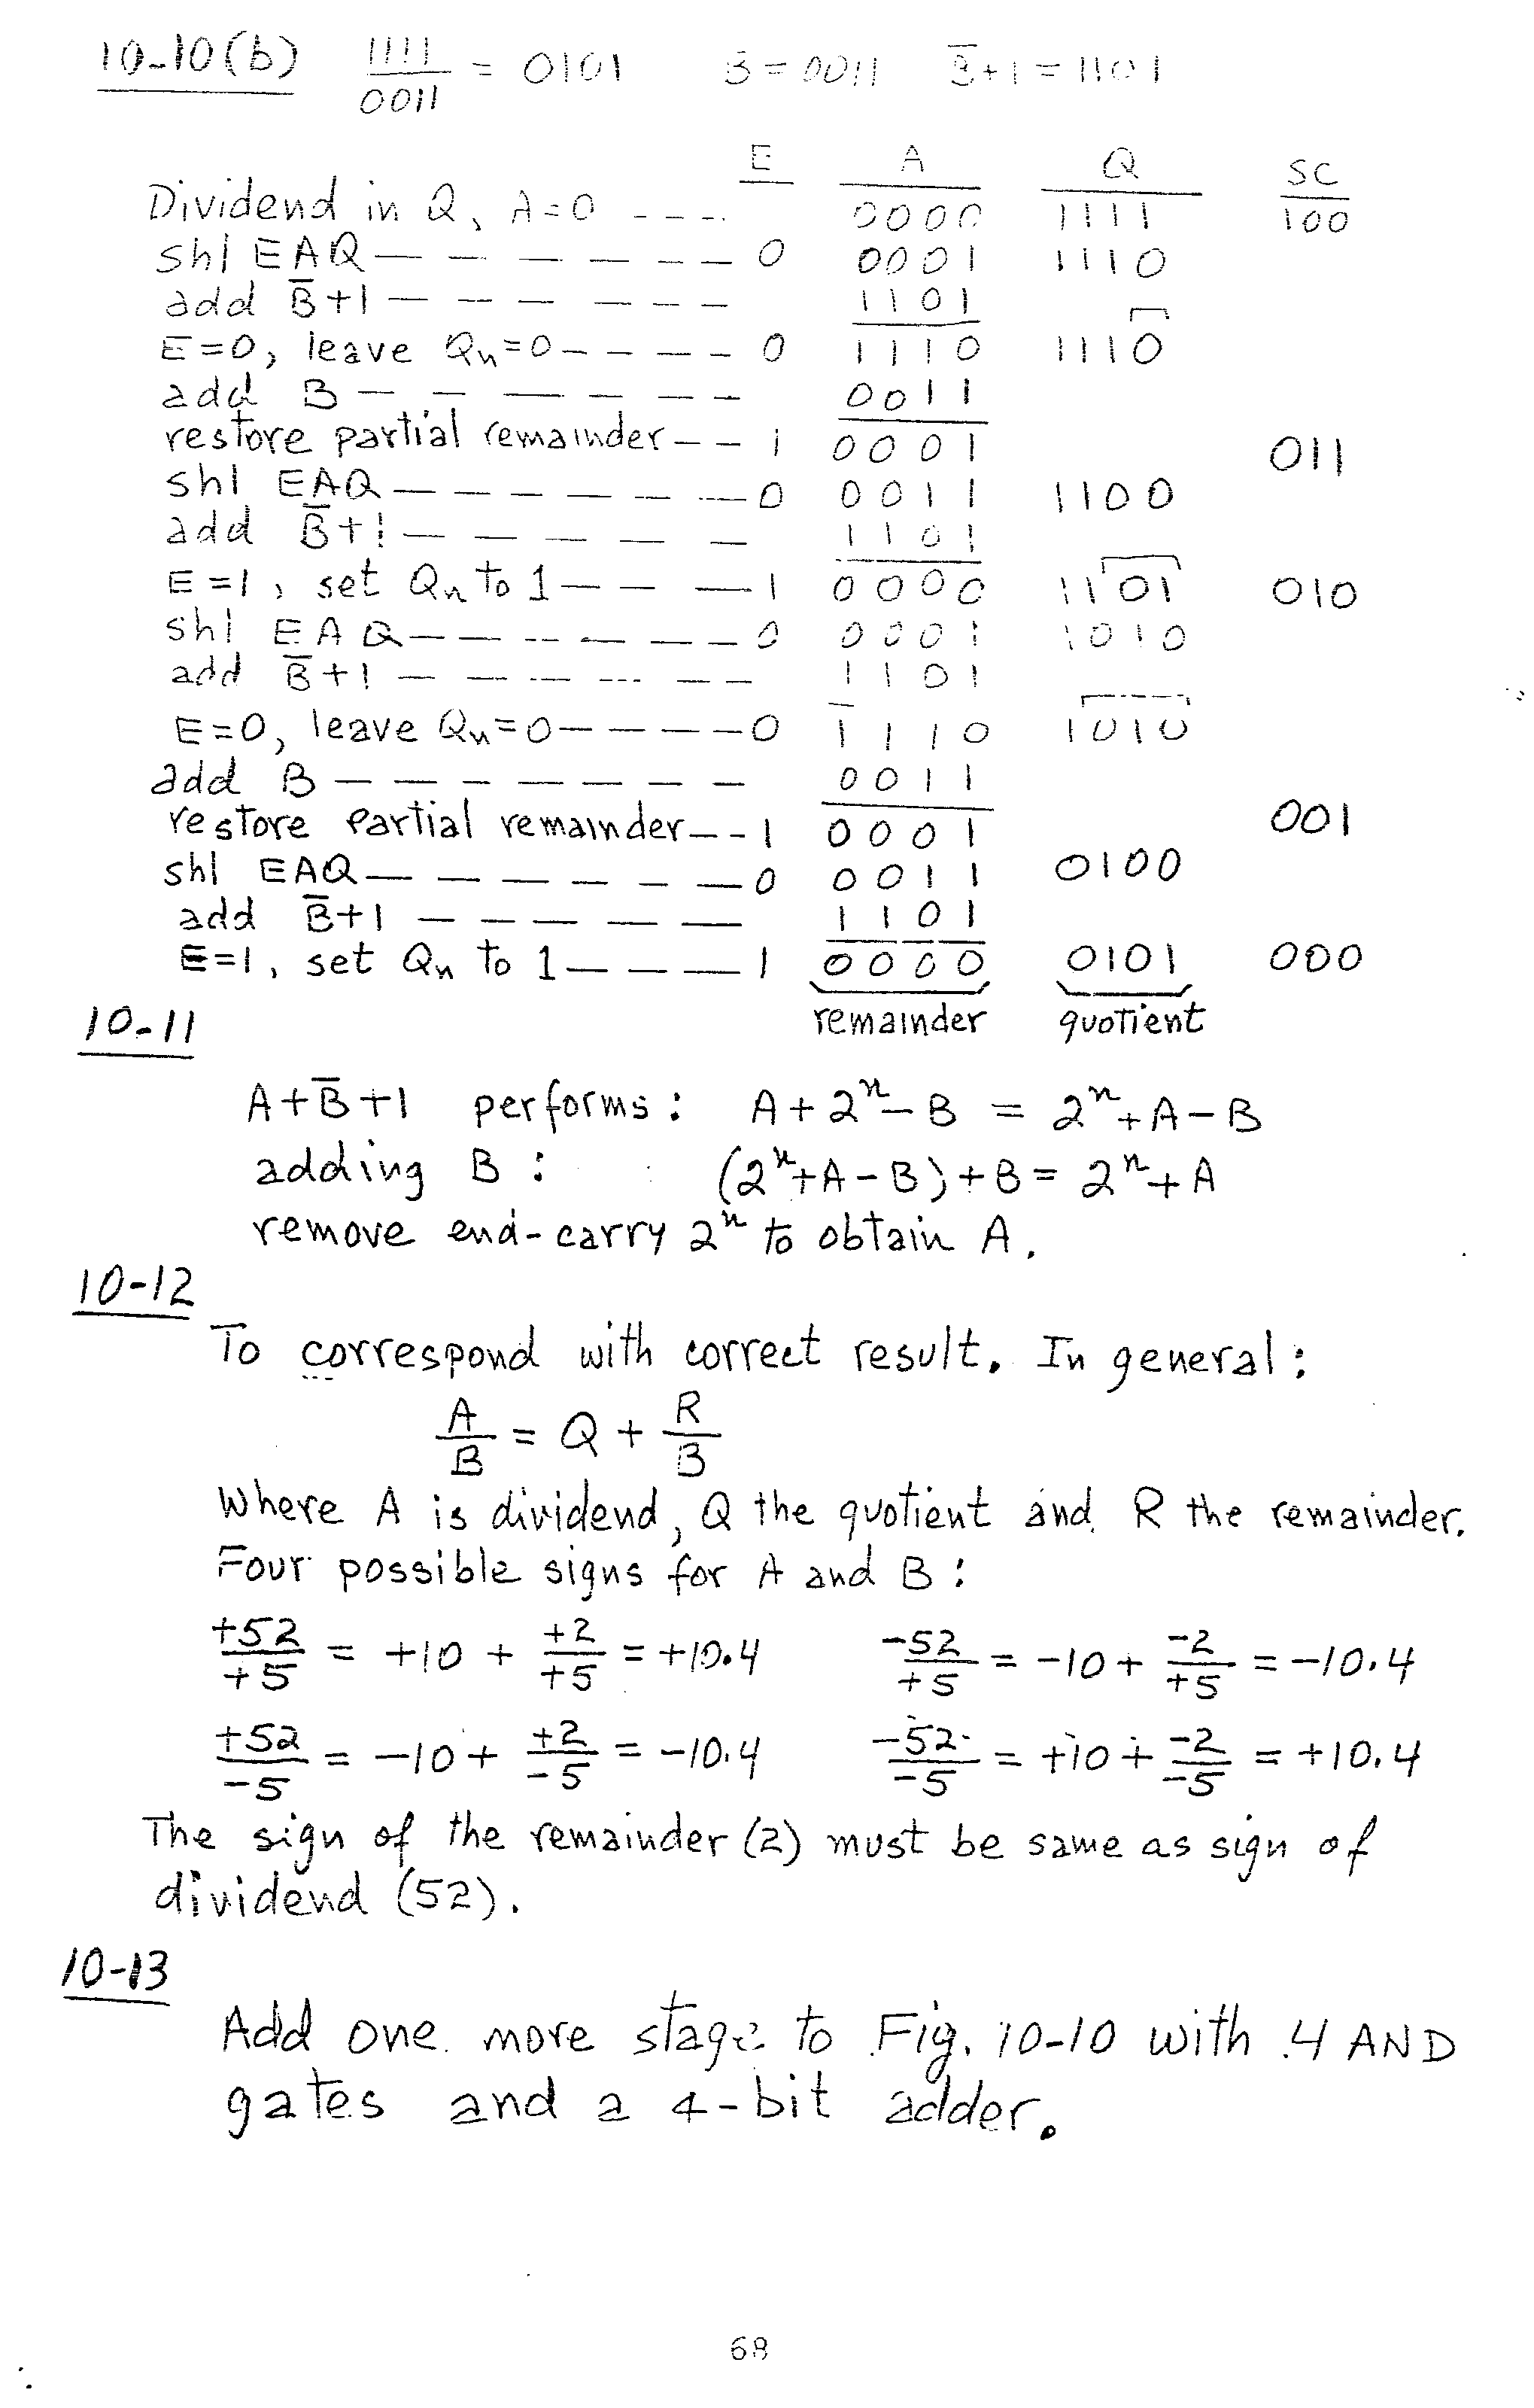 10-10(b) 1111/0011 = 0101 B = 0011 B̅+1 = 1101
E A Q SC
Dividend in Q, A=0 ---- 0000 1111 100
shl EAQ ------- 0 0001 1110
add B̅+1 ------- 1101
E=0, leave Qn=0 ----- 0 1110 1110
add B ------- 0011
restore partial remainder -- 1 0001 011
shl EAQ ------- 0 0011 1100
add B̅+1 ------ 1101
E=1, set Qn to 1 --- 1 0000 1101 010
shl EAQ ------- 0 0001 1010
add B̅+1 ------- 1101
E=0, leave Qn=0 ----- 0 1110 1010
add B ------- 0011
restore partial remainder -- 1 0001 001
shl EAQ ------ 0 0011 0100
add B̅+1 ------ 1101
E=1, set Qn to 1 --- 1 0000 0101 000
remainder quotient
10-11
A+B̅+1 performs: A+2ⁿ-B = 2ⁿ+A-B
adding B: (2ⁿ+A-B)+B = 2ⁿ+A
remove end-carry 2ⁿ to obtain A.
10-12
To correspond with correct result. In general:
A/B = Q + R/B
Where A is dividend, Q the quotient and R the remainder.
Four possible signs for A and B:
+52/+5 = +10 + +2/+5 = +10.4 -52/+5 = -10 + -2/+5 = -10.4
+52/-5 = -10 + +2/-5 = -10.4 -52/-5 = +10 + -2/-5 = +10.4
The sign of the remainder (2) must be same as sign of
dividend (52).
10-13
Add one more stage to Fig. 10-10 with 4 AND
gates and a 4-bit adder.
68